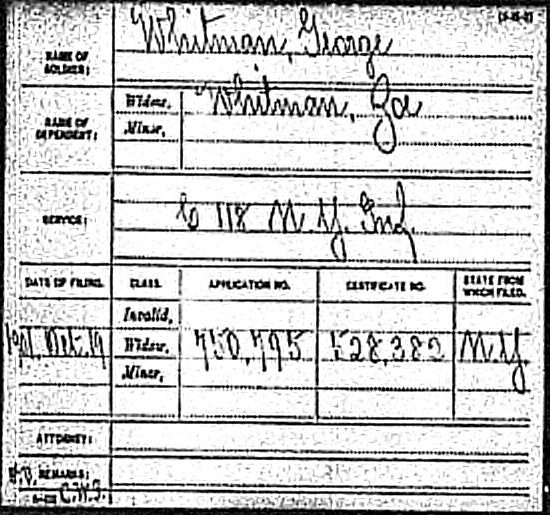 Whitman, George
NAME OF SOLDIER:
NAME OF DEPENDENT:
Widow, Whitman, Zoe
Minor,
SERVICE: Co 118 N.Y. Inf.
DATE OF FILING. CLASS. APPLICATION NO. CERTIFICATE NO. STATE FROM WHICH FILED.
Invalid,
Oct. 19 Widow, 750,795 528,382 N.Y.
Minor,
ATTORNEY:
REMARKS: